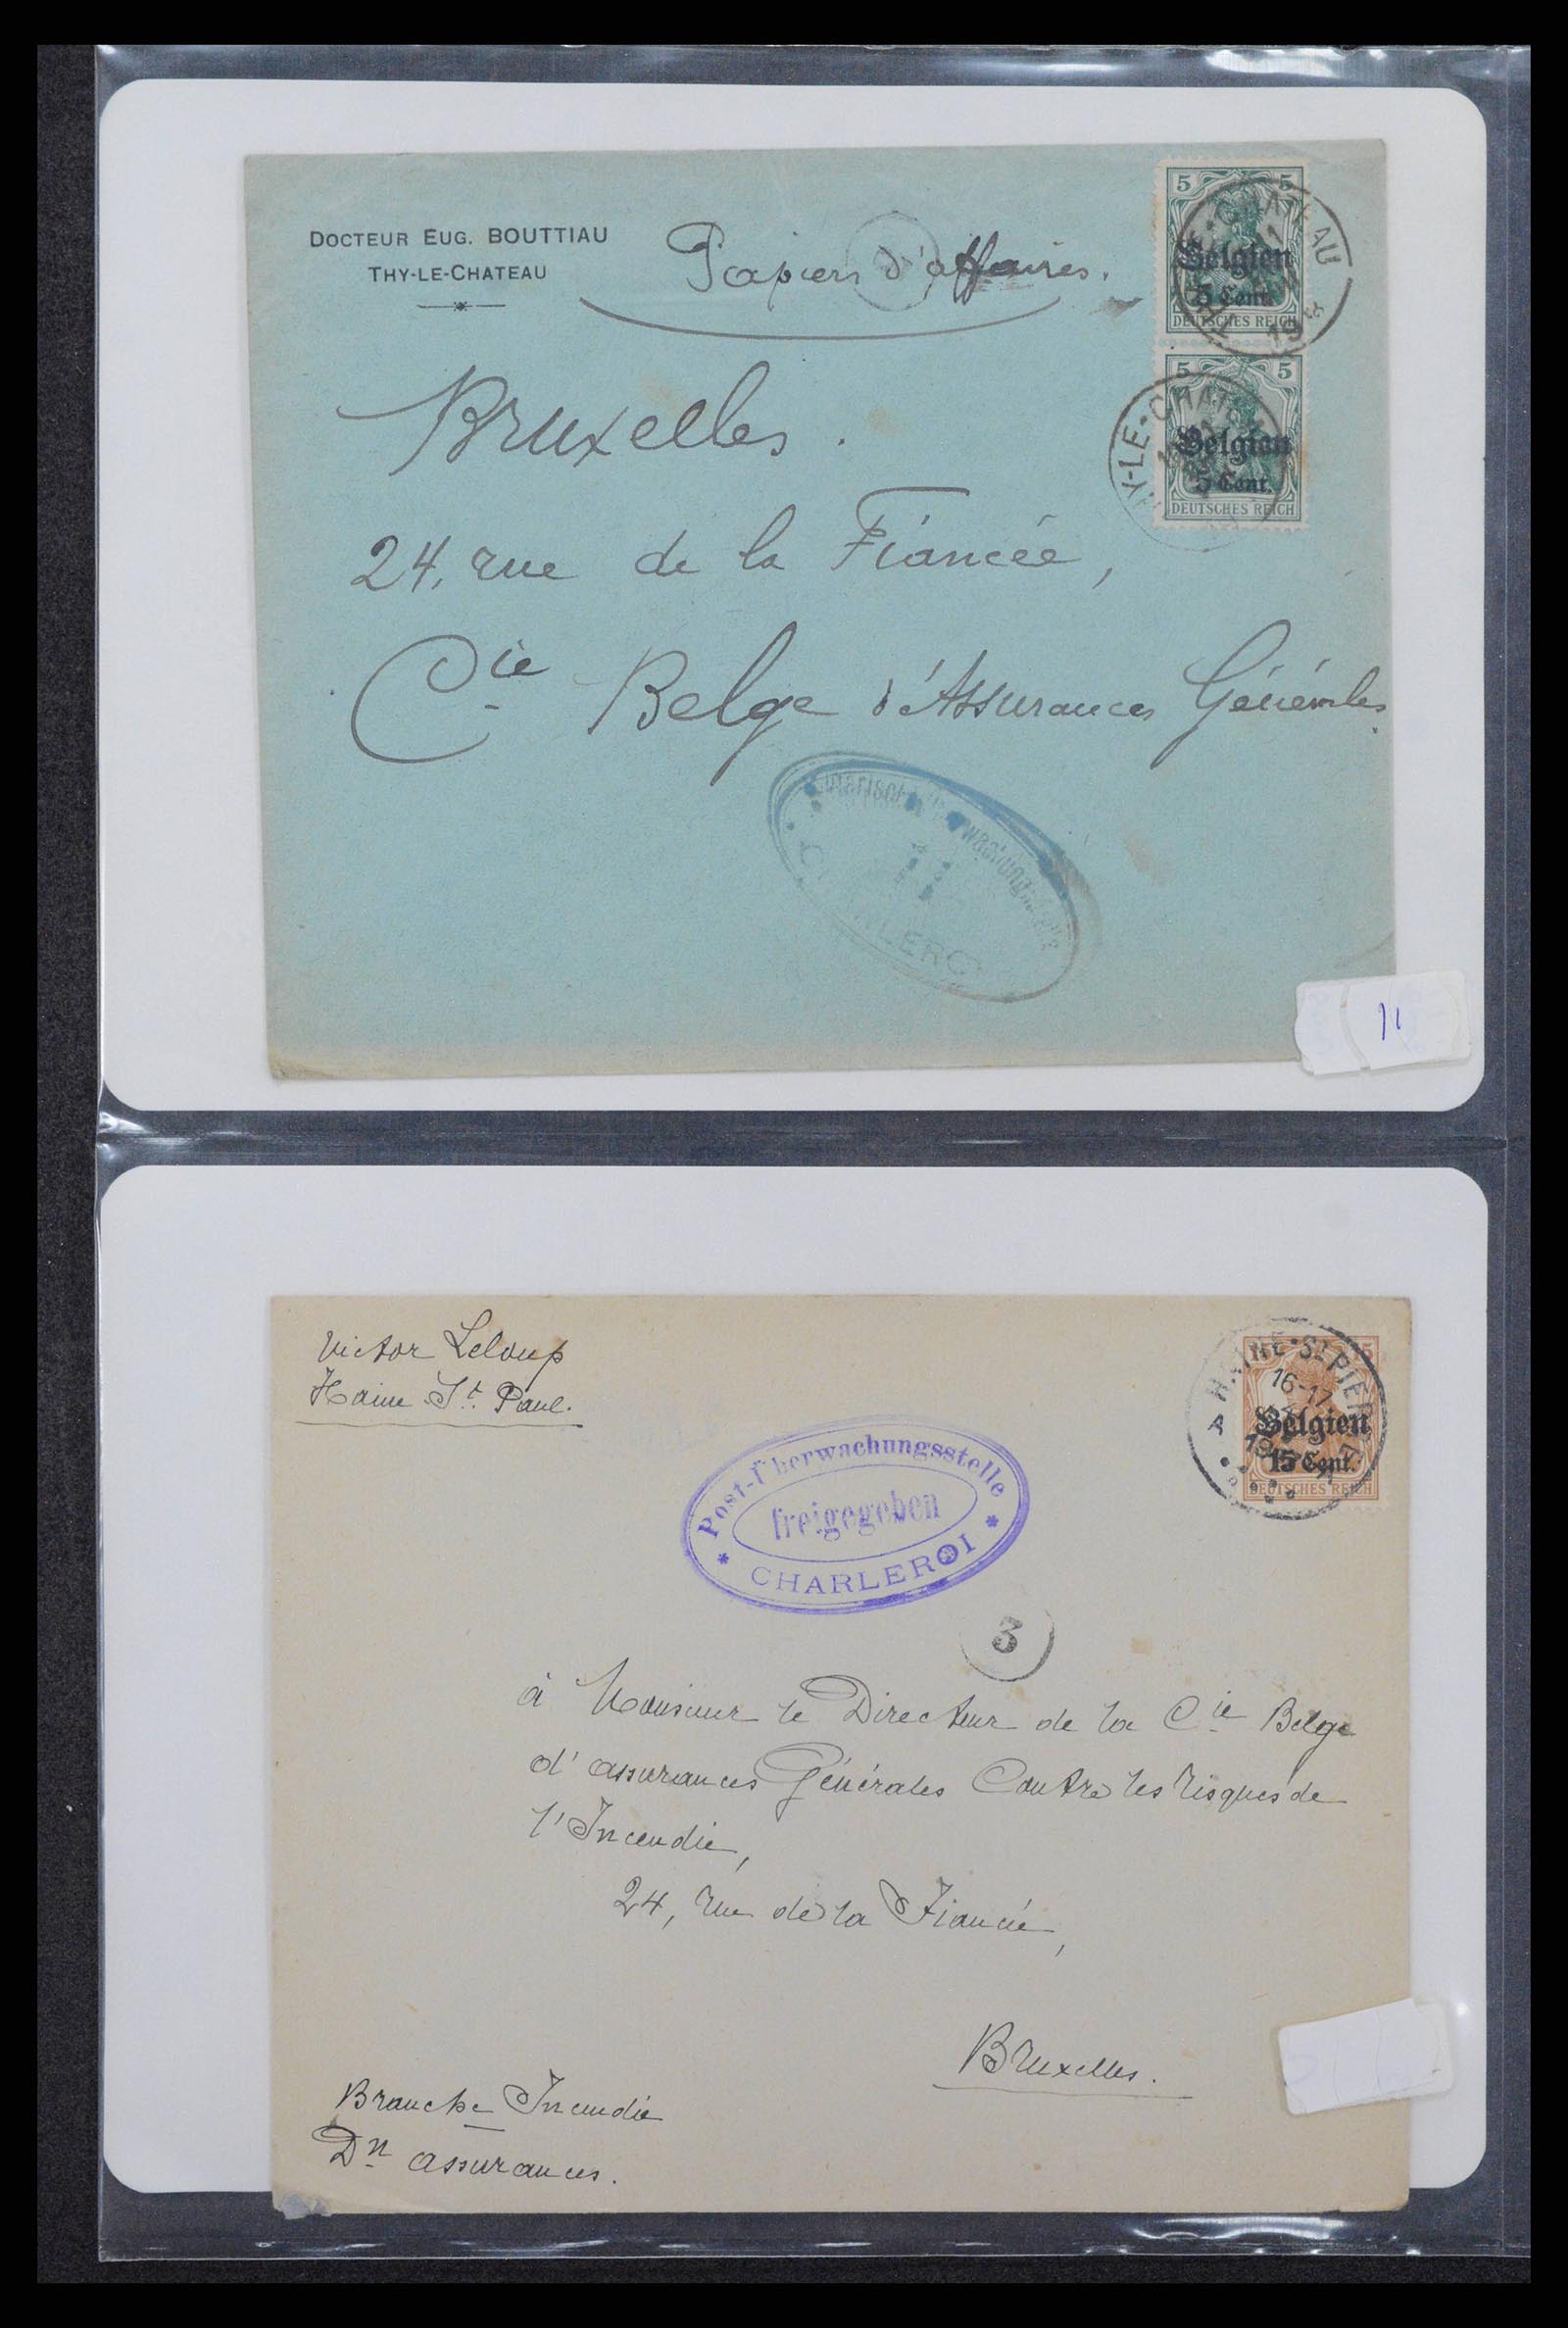 DOCTEUR EUG. BOUTTIAU
THY-LE-CHATEAU
Papiers d'affaires.
5 5
Belgien
5 Cent.
DEUTSCHES REICH
5 5
Belgien
5 Cent.
DEUTSCHES REICH
Y-LE-CHAT
Bruxelles.
24, rue de la Fiancée,
Cie Belge d'Assurances Générales
11
Victor Leloup
Haine St. Paul.
HAINE-ST PIERRE
16-17
Belgien
15 Cent.
DEUTSCHES REICH
Post-Überwachungsstelle
freigegeben
* CHARLEROI *
3
à Monsieur le Directeur de la Cie Belge
d'assurances Générales Contre les risques de
l'Incendie,
24, rue de la Fiancée,
Bruxelles.
Branche Incendie
Dn assurances.